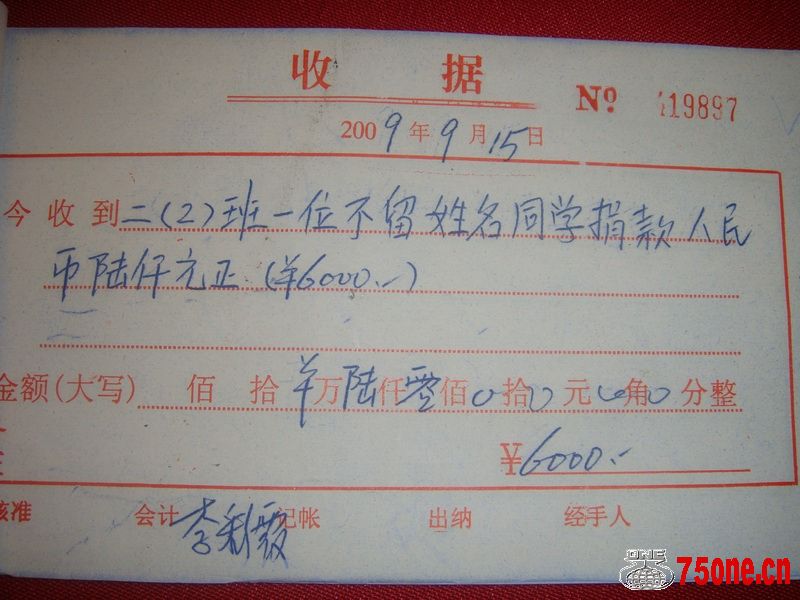 收 据
Nº 419897
2009年9月15日
今收到二(2)班一位不留姓名同学捐款人民
币陆仟元正 (¥6000.-)
金额(大写) 佰 拾 ¥万陆仟零佰0拾0元0角0分整
¥6000.-
核准 会计 李彩霞 记帐 出纳 经手人
ONE
75one.cn